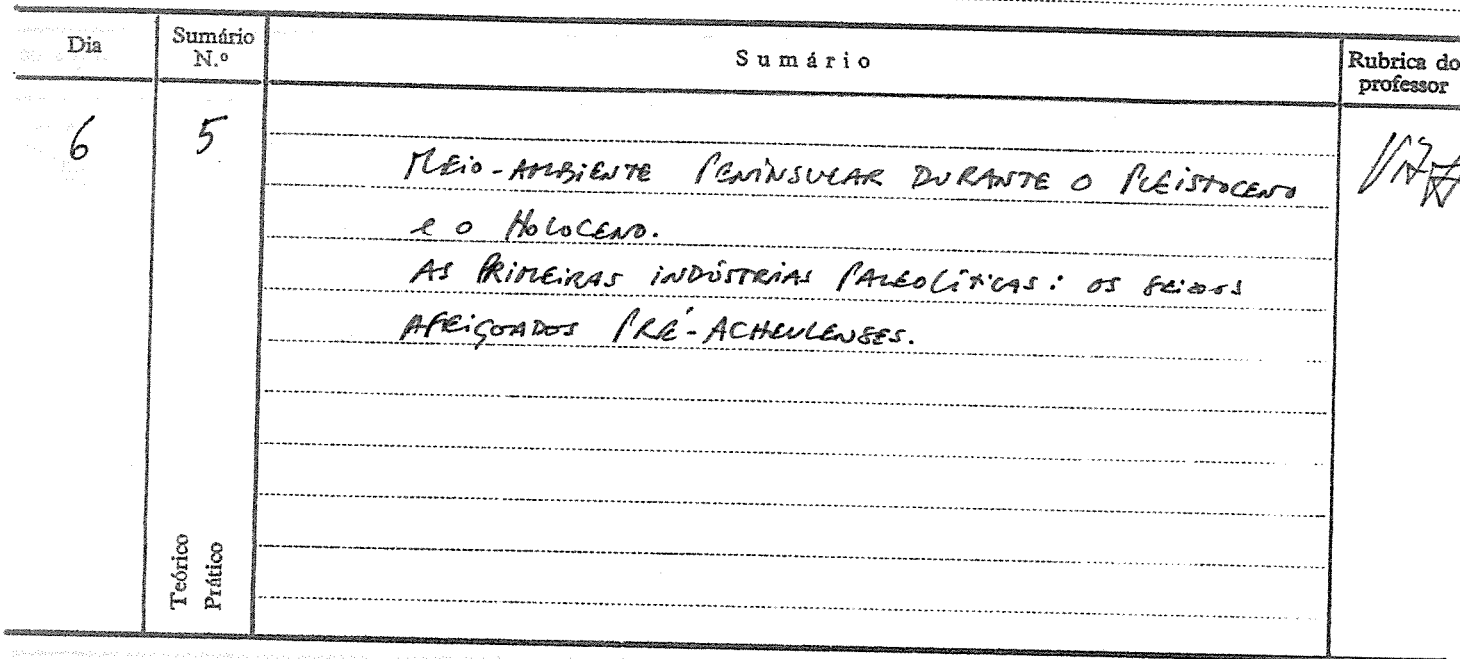 Dia
Sumário N.º
Sumário
Rubrica do professor
6
5
MEIO-AMBIENTE PENINSULAR DURANTE O PLEISTOCENO
e o HOLOCENO.
AS PRIMEIRAS INDÚSTRIAS PALEOLÍTICAS: OS SEIXOS
AFEIÇOADOS PRÉ-ACHEULENSES.
Teórico
Prático